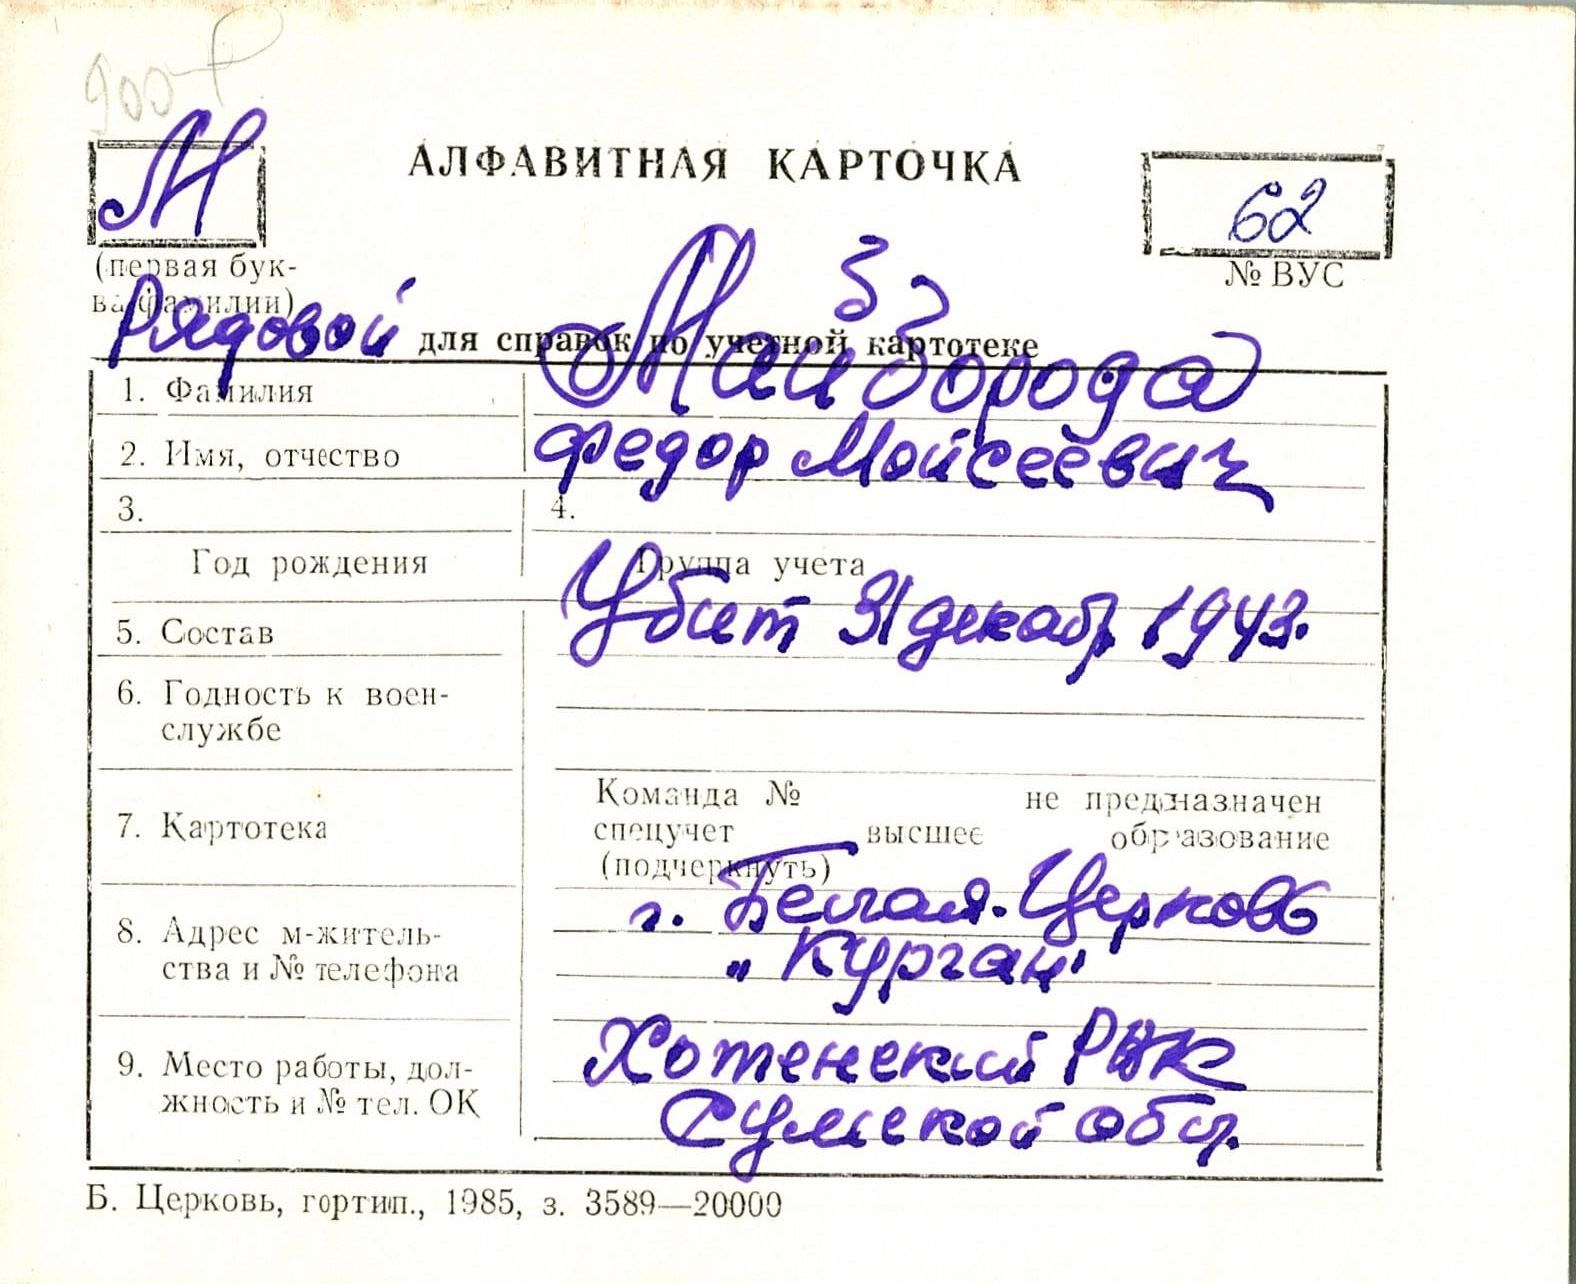 900
М
АЛФАВИТНАЯ КАРТОЧКА
62
(первая бук-
ва фамилии)
№ ВУС
Рядовой
для справок по учетной картотеке
1. Фамилия
Майборода
2. Имя, отчество
Федор Мойсеевич
3.
4.
Год рождения
Группа учета
Убит 31 декабр 1943.
5. Состав
6. Годность к воен-
службе
7. Картотека
Команда № не предназначен
спецучет высшее образование
(подчеркнуть)
8. Адрес м-житель-
ства и № телефона
г. Белая-Церковь
"Курган"
9. Место работы, дол-
жность и № тел. ОК
Хотенский РВК
Сумской обл.
Б. Церковь, гортип., 1985, з. 3589—20000